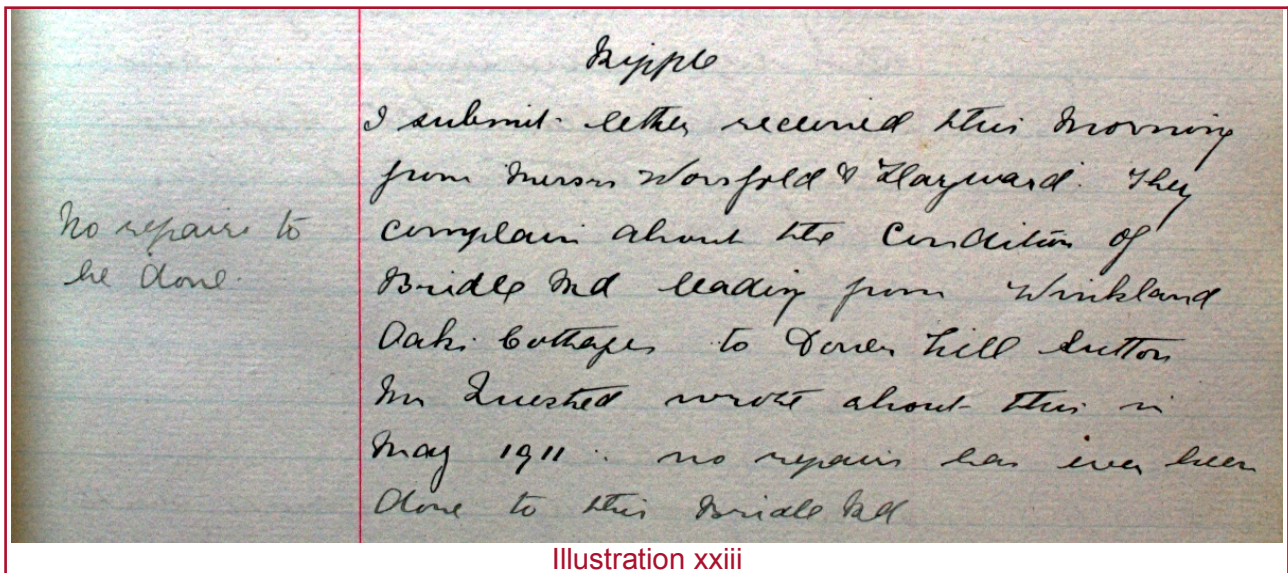 Ripple
I submit letter received this Morning
from Messrs Worsfold & Hayward. They
complain about the Condition of
Bridle Rd leading from Winkland
Oaks Cottages to Dover hill Sutton
Mr Quested wrote about this in
May 1911. no repairs has ever been
done to this Bridle Rd
No repairs to
be done.
Illustration xxiii